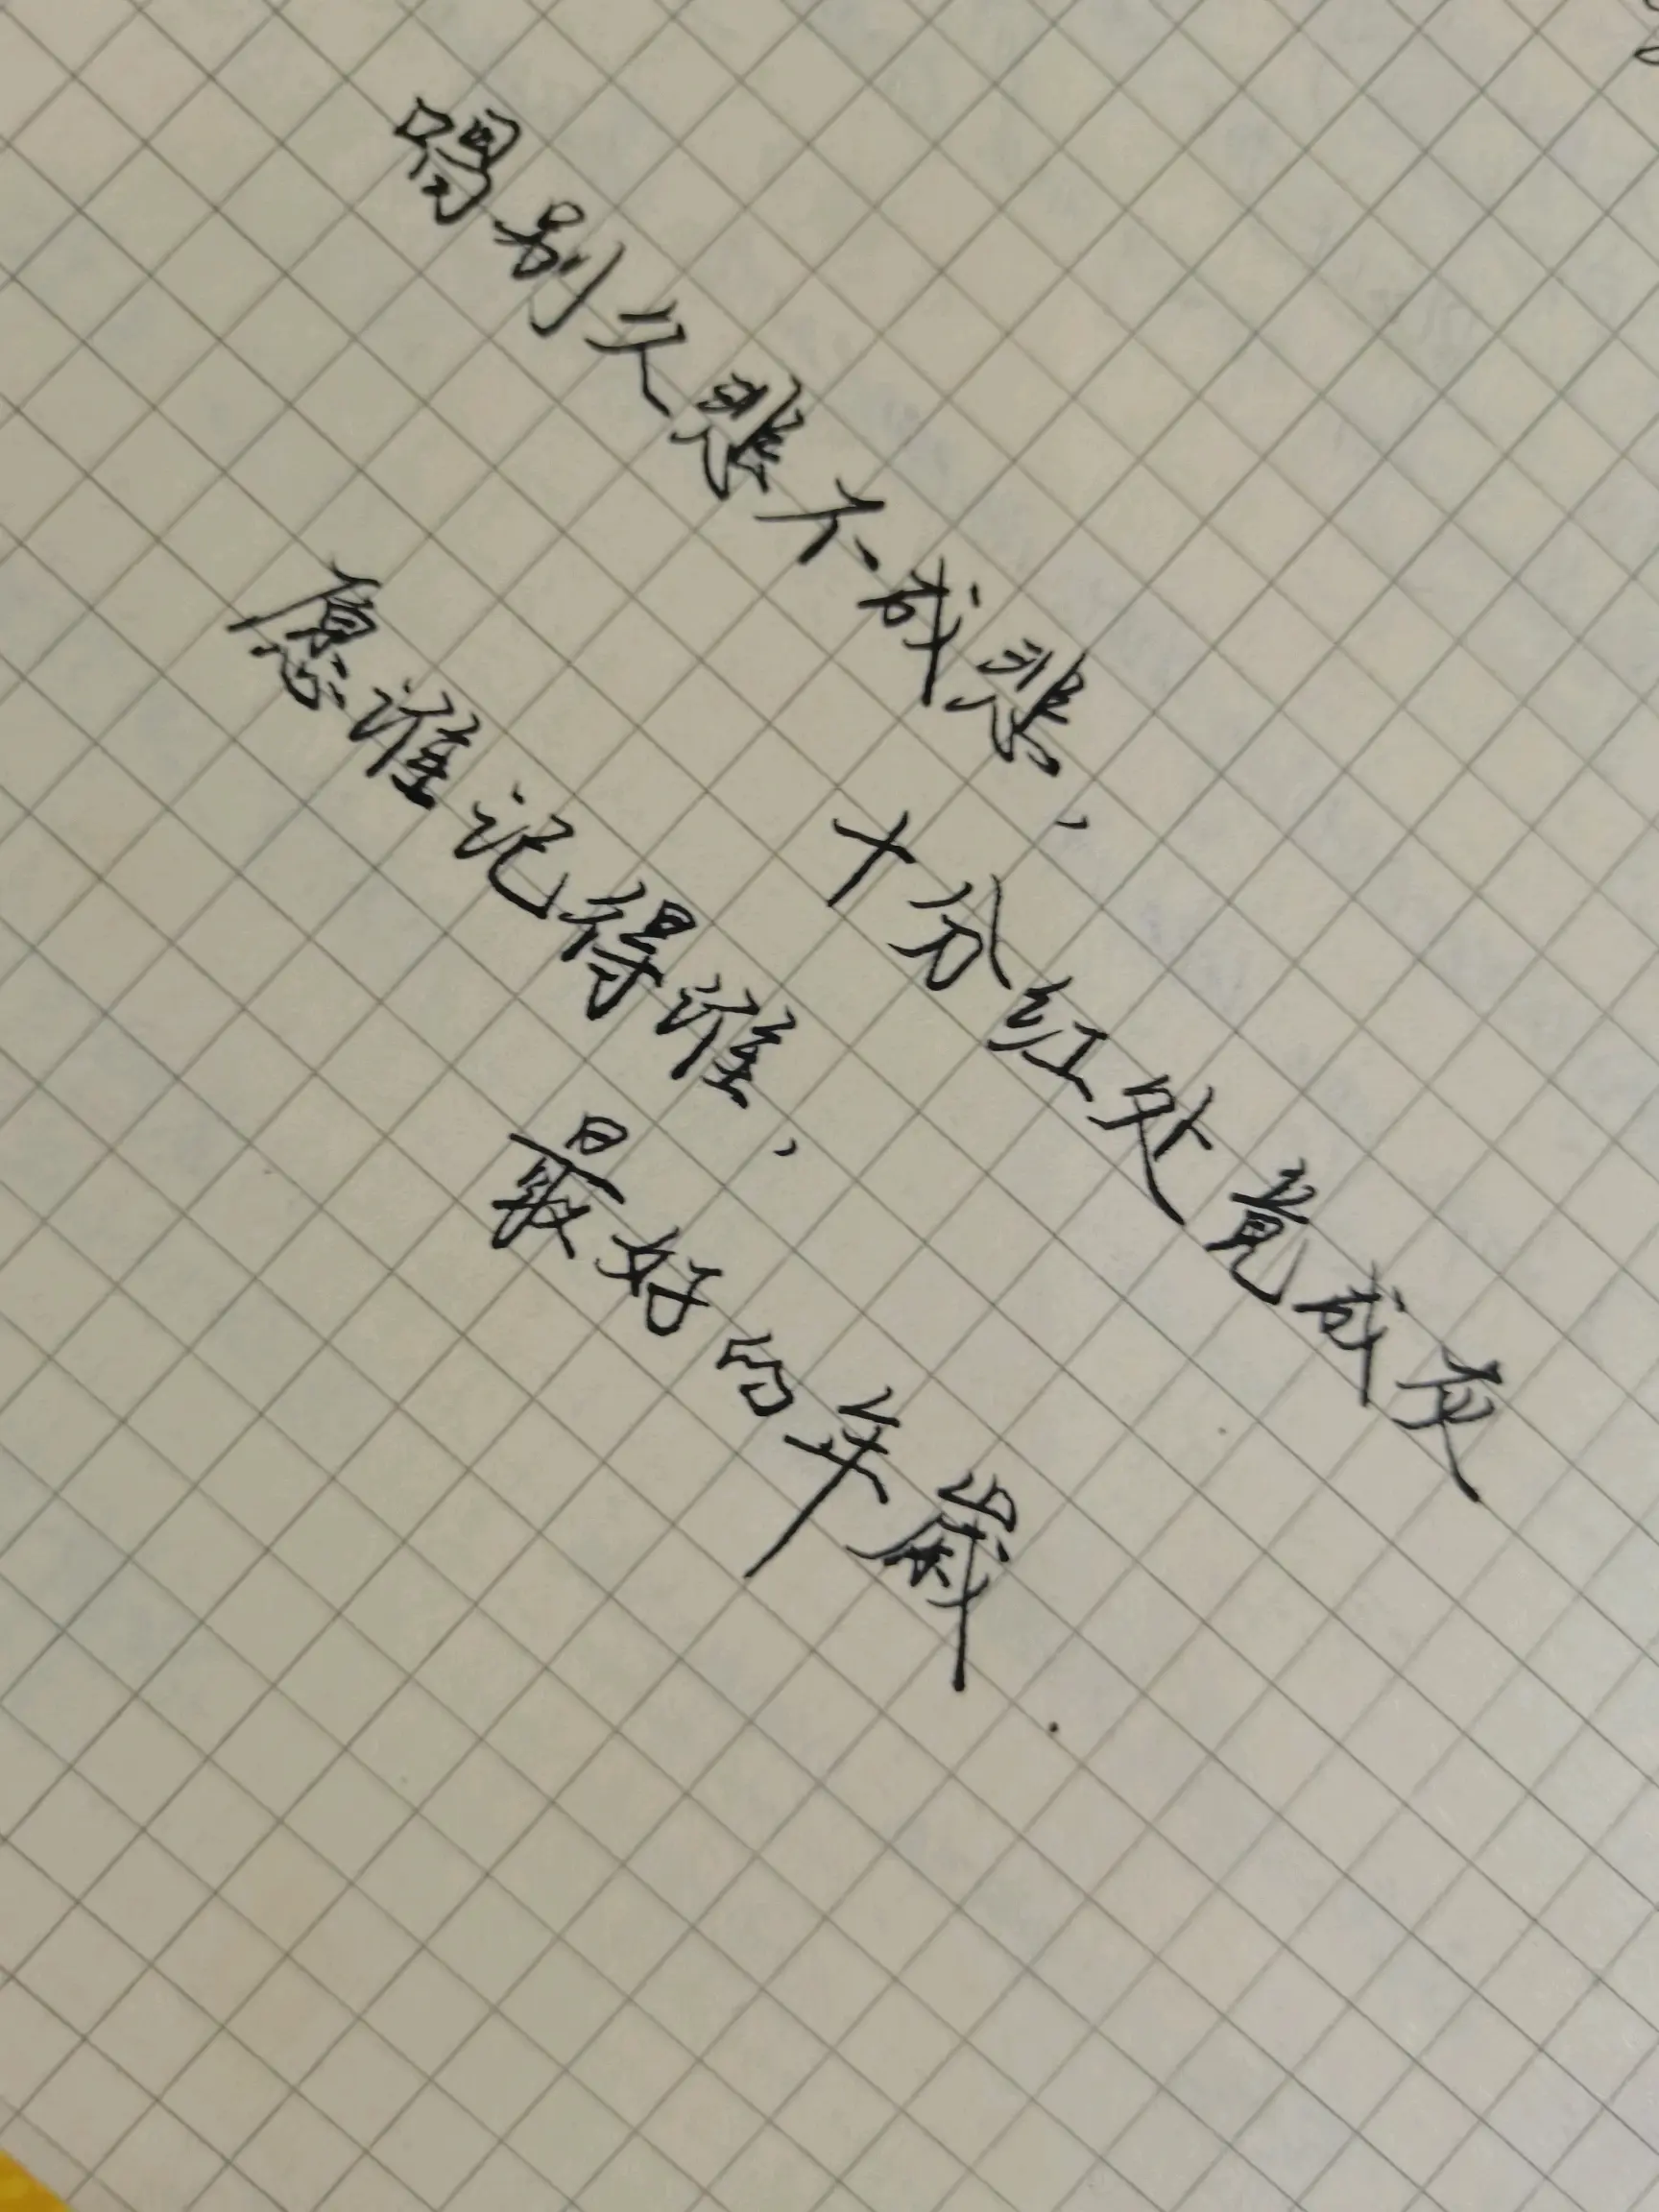 唱别久悲不成悲，
十分红处竟成灰
愿谁记得谁，
最好的年嵗.